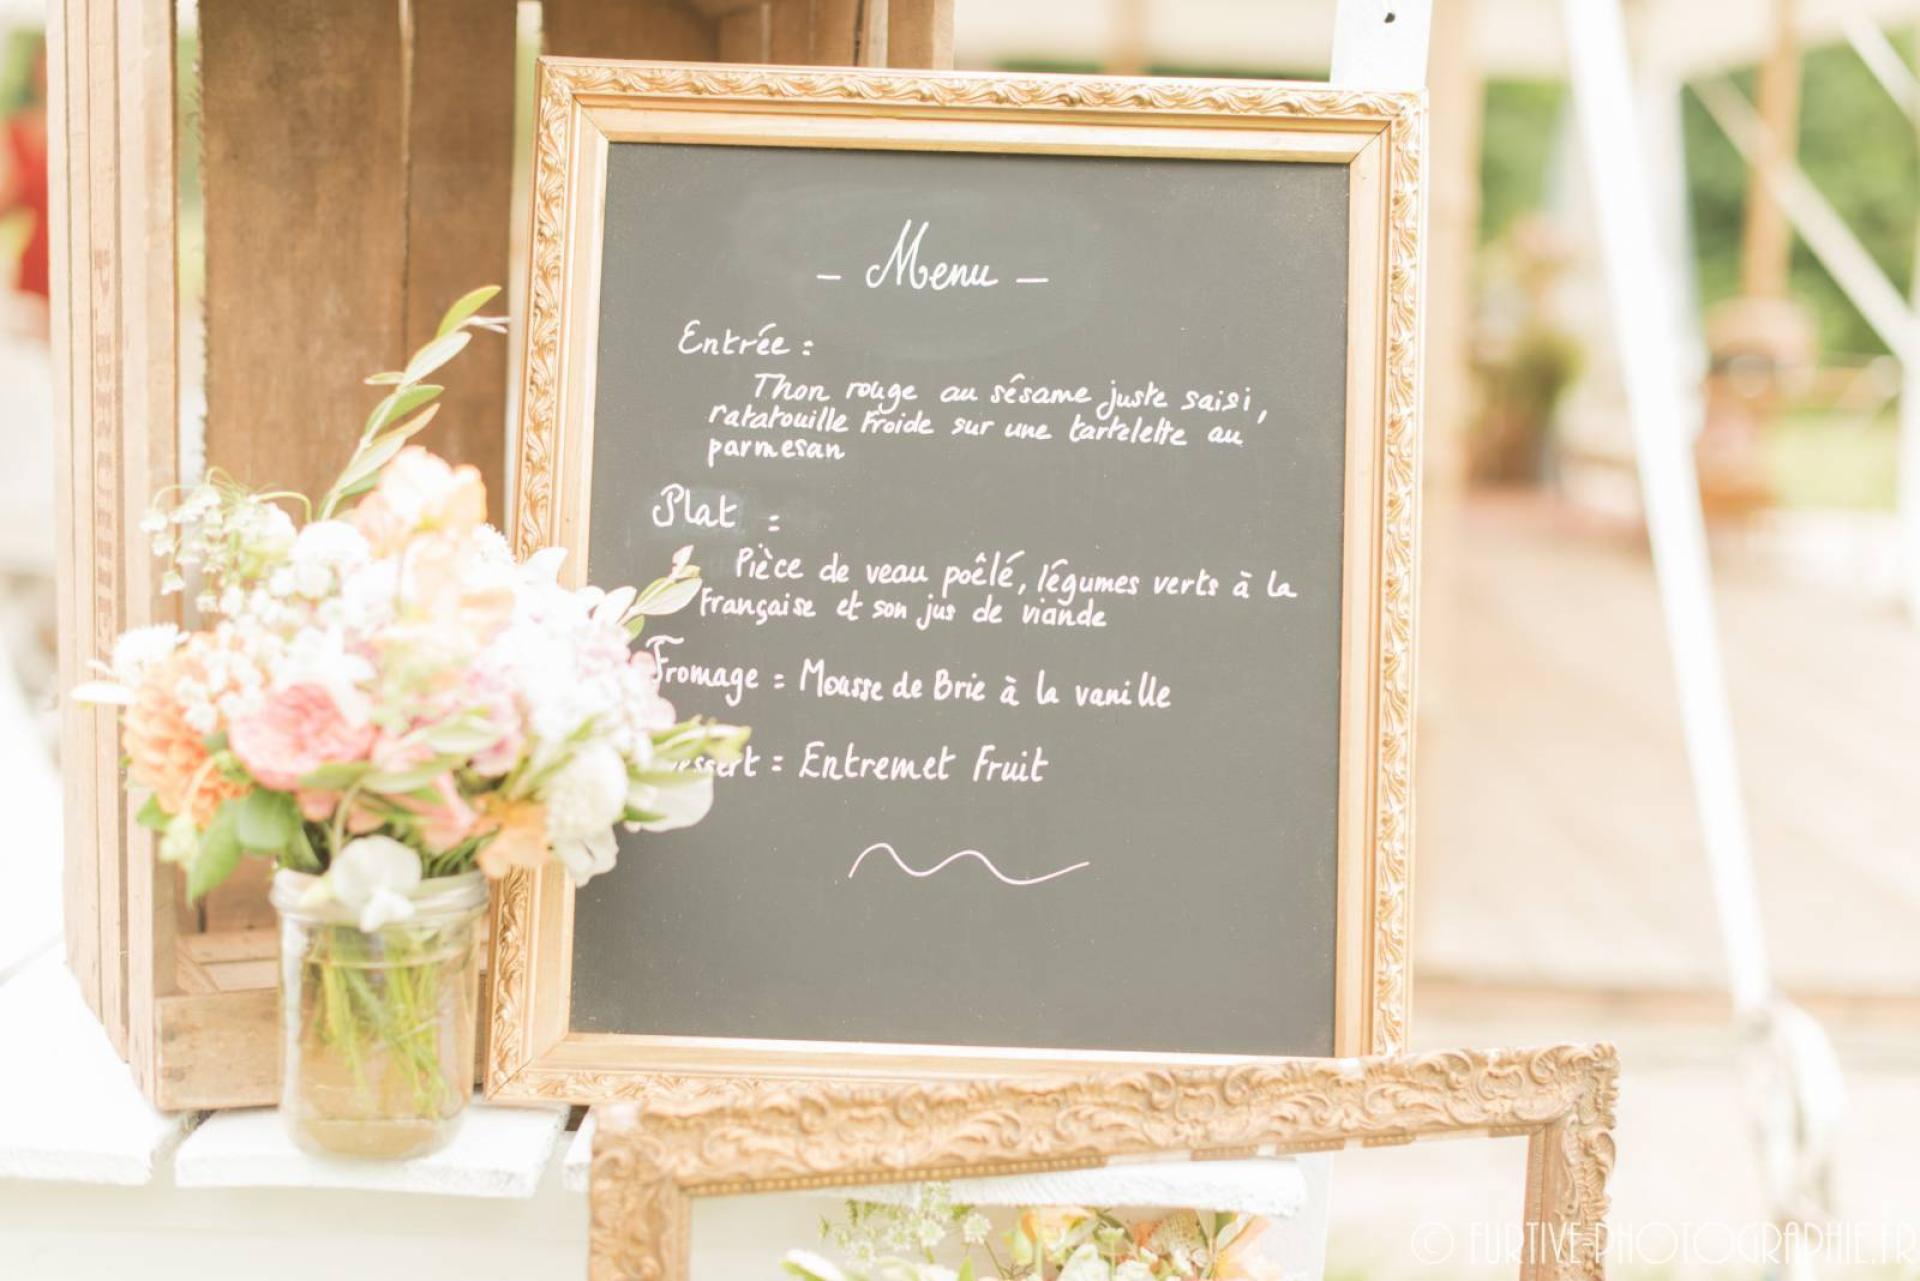 - Menu -
Entrée :
Thon rouge au sésame juste saisi,
ratatouille froide sur une tartelette au
parmesan
Plat :
Pièce de veau poêlé, légumes verts à la
Française et son jus de viande
Fromage : Mousse de Brie à la vanille
: Entremet Fruit
© FURTIVE-PHOTOGRAPHIE.FR